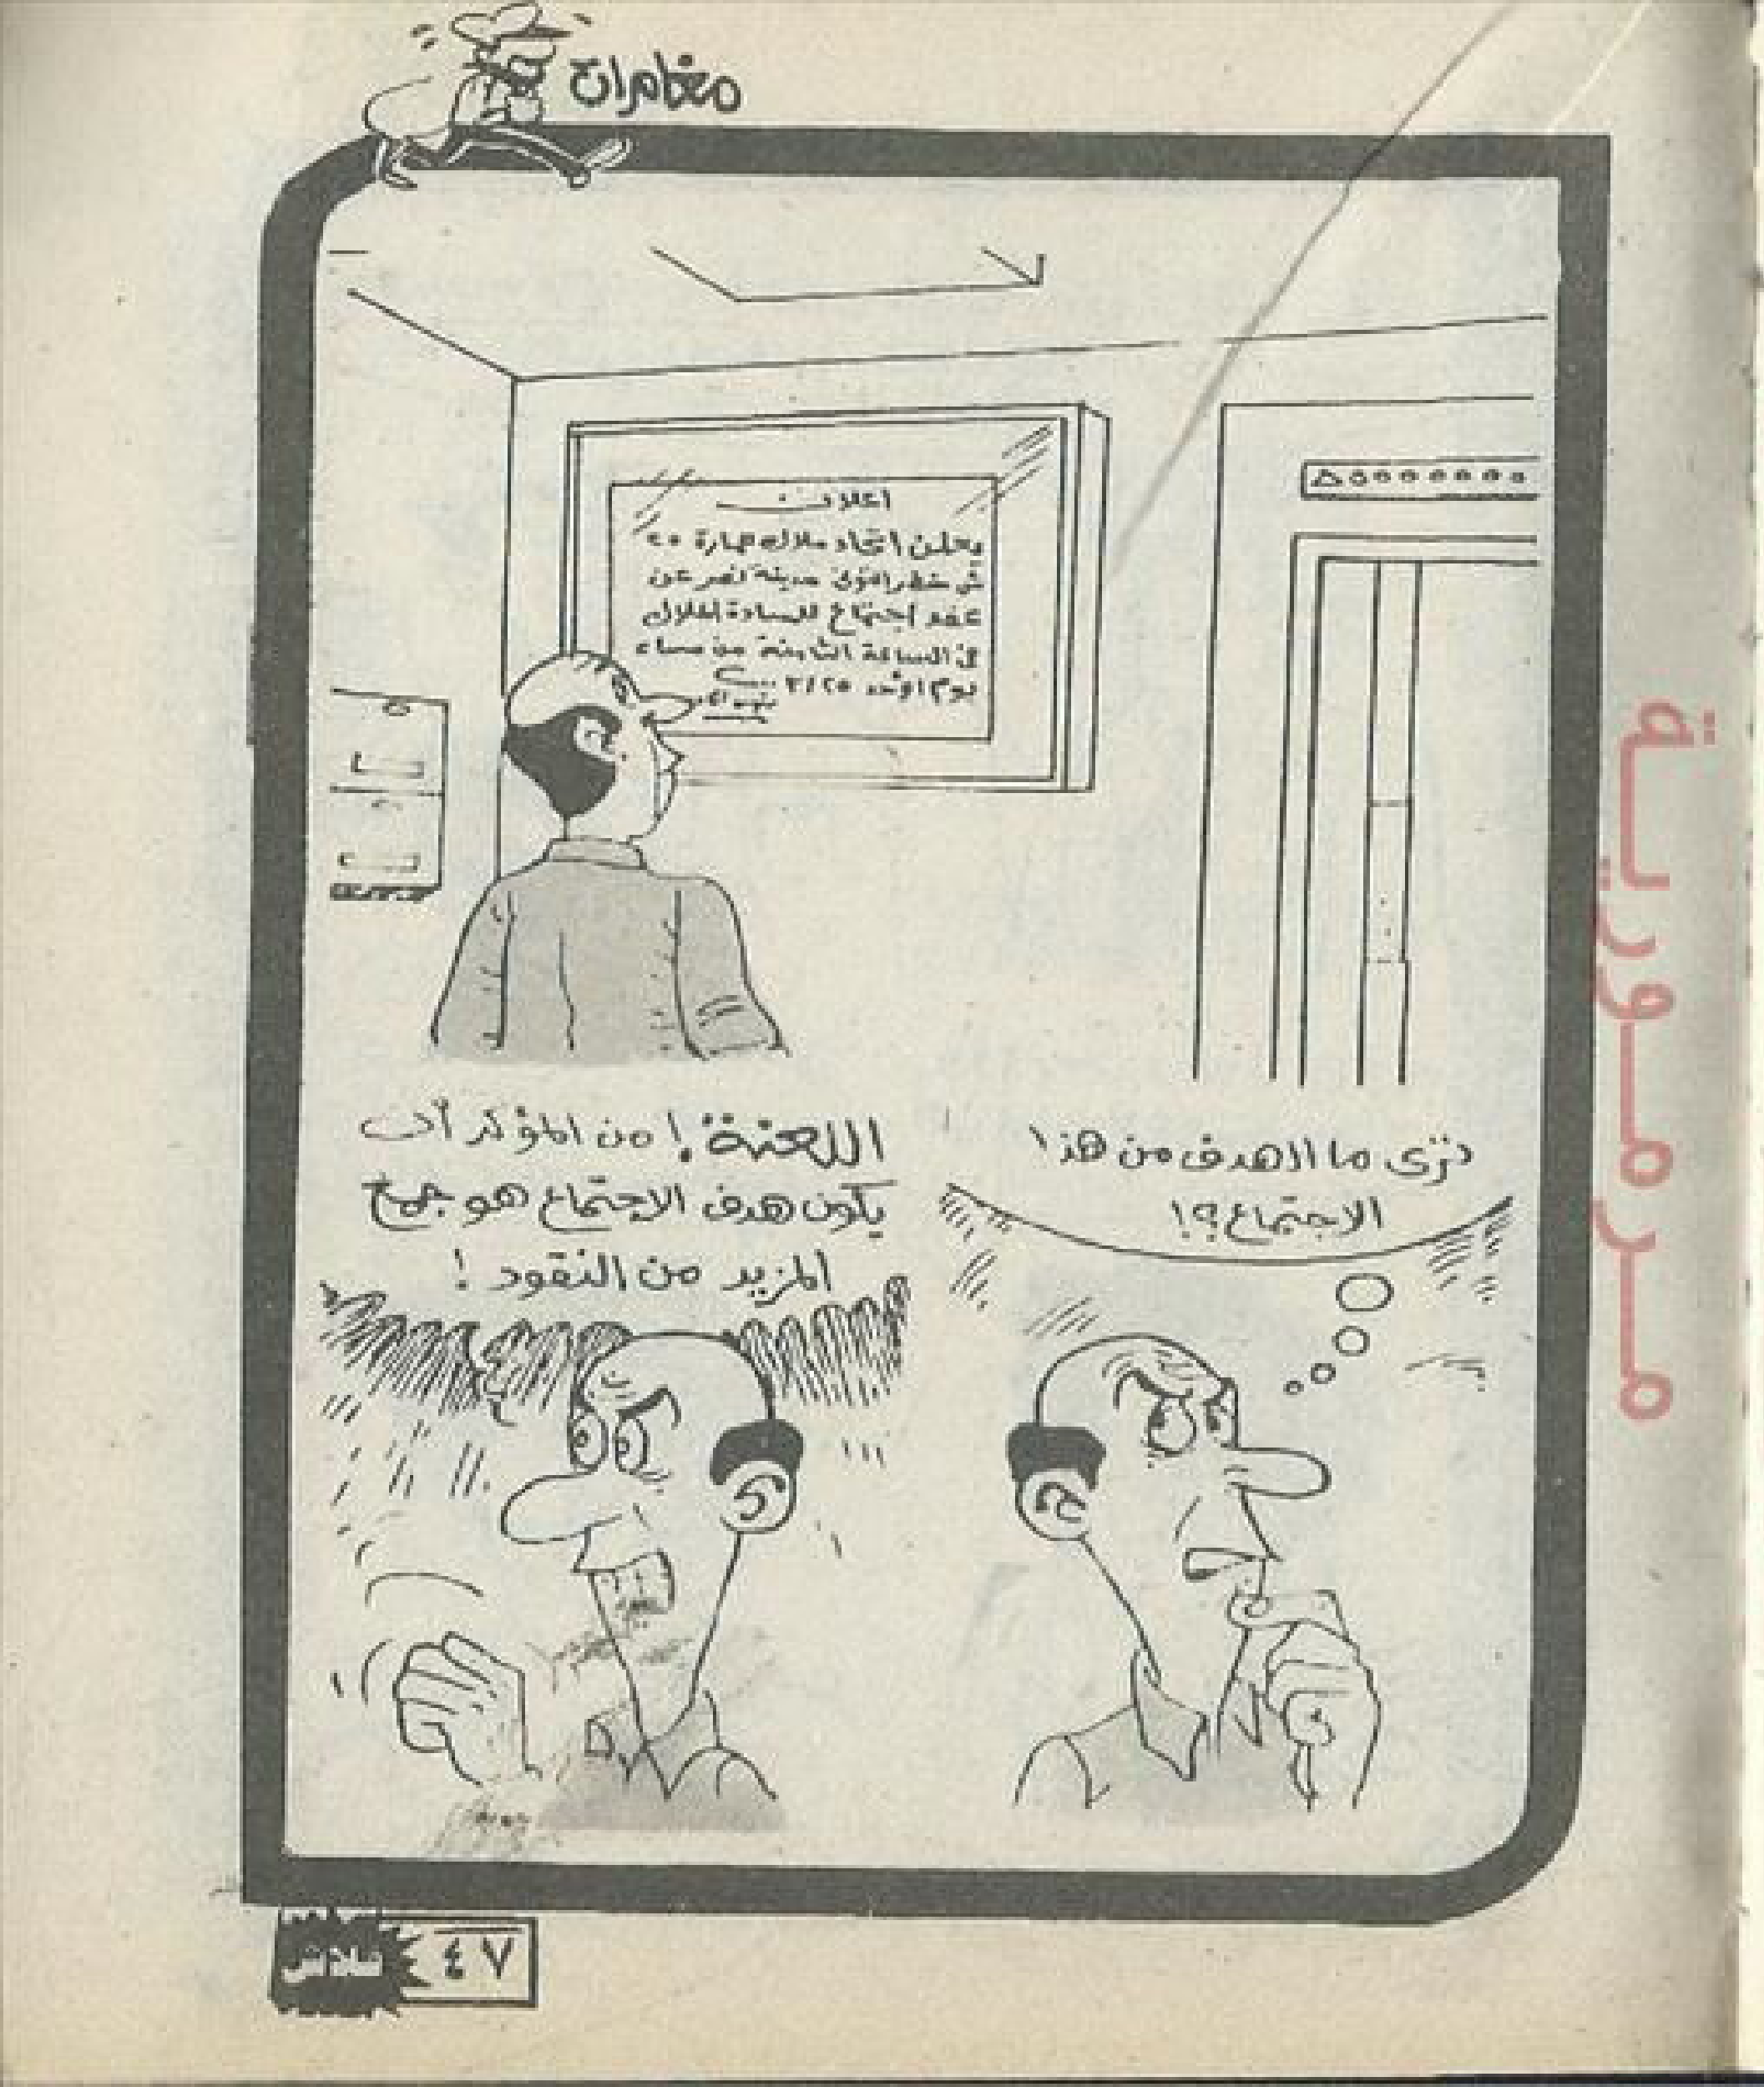 مغامرات
اعلان
يعلن اتحاد ملاك عمارة ٢٥
ش مدينة نصر عن
عقد اجتماع للسادة الملاك
في الساعة الثامنة من مساء
يوم الأحد ٣/٢٥
ترى ما الهدف من هذا
الاجتماع؟!
اللعنة! من المؤكد أن
يكون هدف الاجتماع هو جمع
المزيد من النقود!
فلاش
٤٧
مرمورية